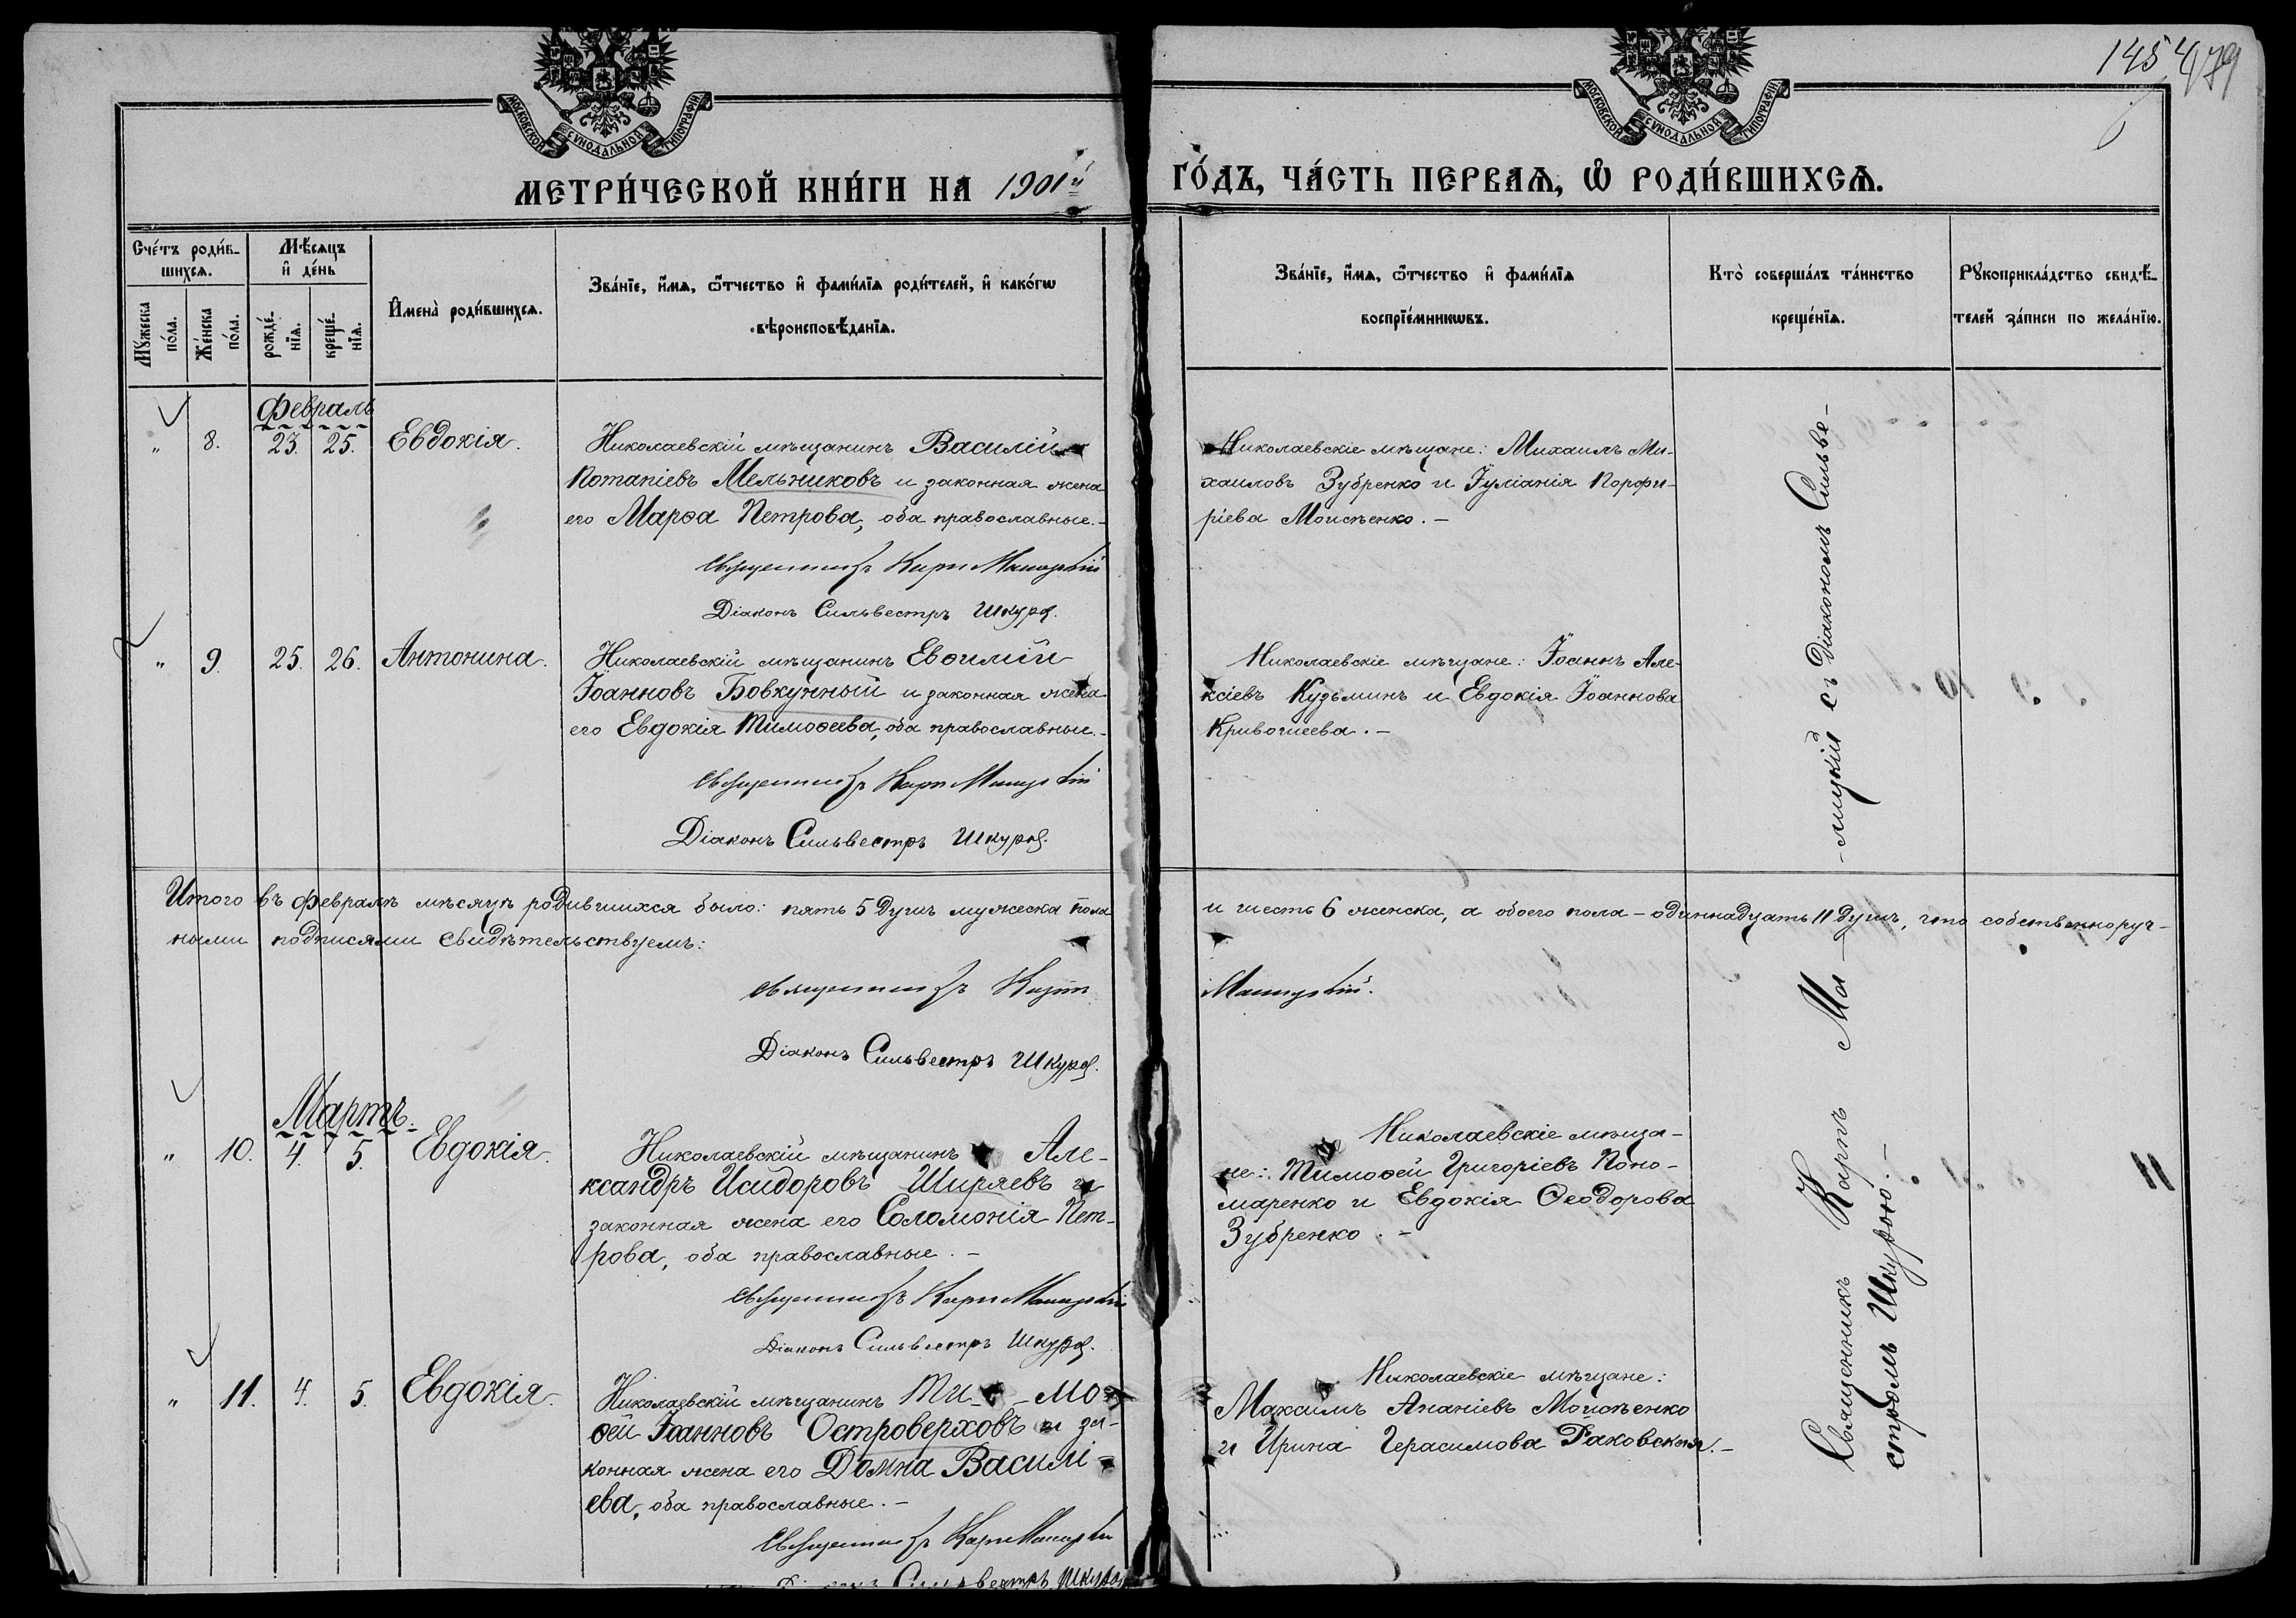 145 479
МОСКОВСКОЙ СѴНОДАЛЬНОЙ ТИПОГРАФІИ
МОСКОВСКОЙ СѴНОДАЛЬНОЙ ТИПОГРАФІИ
МЕТРИ́ЧЕСКОЙ КНИ́ГИ НА 1901й
ГО́ДЪ, ЧА́СТЬ ПЕРВАѦ, Ѽ РОДИ́ВШИХСѦ.
Сче́тъ роди́в-
шихсѧ.
Мѣ́сяцъ
и҆ де́нь
И҆мена̀ роди́вшихсѧ.
Зва́нїе, и҆́мѧ, ѻ҆́тчество и҆ фами́лїѧ роди́телей, и҆ како́гѡ
вѣроисповѣ́данїѧ.
Зва́нїе, и҆́мѧ, ѻ҆́тчество и҆ фами́лїѧ
воспрїе́мникѡвъ.
Кто̀ соверша́лъ та́инство
креще́нїѧ.
Рꙋкоприкла́дство свидѣ́-
телей за́писи по жела́нїю.
Мꙋ́жеска по́ла.
Же́нска по́ла.
рожде́-
нїѧ.
креще́-
нїѧ.
Февраль
" 8. 23. 25. Евдокія.
Николаевскій мѣщанинъ Василій
Потапіевъ Мельниковъ и законная жена
его Марѳа Петрова, оба православные.-
Священникъ Карпъ Малицкій
Діаконъ Сильвестръ Шкура.
Николаевскіе мѣщане: Михаилъ Ми-
хаиловъ Зубренко и Іуліанія Порфи-
ріева Моисѣенко.-
" 9. 25. 26. Антонина.
Николаевскій мѣщанинъ Евѳимій
Іоанновъ Бовкунный и законная жена
его Евдокія Тимоѳеева, оба православные.-
Священникъ Карпъ Малицкій
Діаконъ Сильвестръ Шкура.
Николаевскіе мѣщане: Іоаннъ Але-
ксіевъ Кузьминъ и Евдокія Іоаннова
Кривошеева.-
Итого въ февралѣ мѣсяцѣ родившихся было: пять 5 душъ мужеска пола и шесть 6 женска, а обоего пола - одиннадцать 11 душъ, что собственноруч-
ными подписями свидѣтельствуемъ:
Священникъ Карпъ Малицкій.
Діаконъ Сильвестръ Шкура.
Мартъ.
" 10. 4. 5. Евдокія.
Николаевскій мѣщанинъ Але-
ксандръ Исидоровъ Ширяевъ и
законная жена его Соломонія Пет-
рова, оба православные.-
Священникъ Карпъ Малицкій
Діаконъ Сильвестръ Шкура.
Николаевскіе мѣща-
не: Тимоѳей Григоріевъ Поно-
маренко и Евдокія Ѳеодорова
Зубренко.-
" 11. 4. 5. Евдокія.
Николаевскій мѣщанинъ Ти-мо-
ѳей Іоанновъ Островерховъ и за-
конная жена его Домна Василі-
ева, оба православные.-
Священникъ Карпъ Малицкій
Діаконъ Сильвестръ Шкура
Николаевскіе мѣщане:
Максимъ Ананіевъ Моисѣенко
и Ирина Герасимова Раковская.-
Священникъ Карпъ Ма-лицкій съ Діакономъ Сильве-
стромъ Шкурою.-